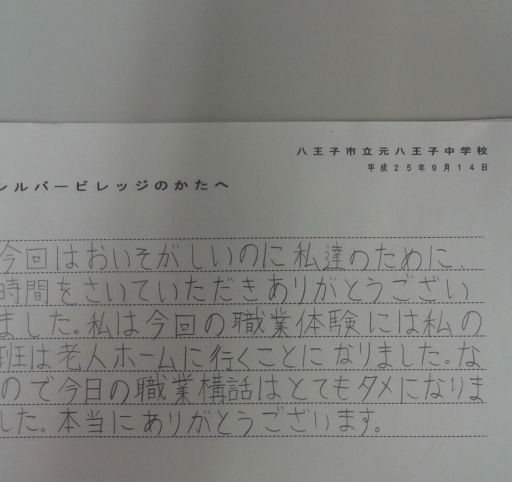 八王子市立元八王子中学校
平成25年9月14日
シルバービレッジのかたへ
今回はおいそがしいのに私達のために、
時間をさいていただきありがとうござい
ました。私は今回の職業体験には私の
班は老人ホームに行くことになりました。な
ので今日の職業構話はとてもタメになりま
した。本当にありがとうございます。